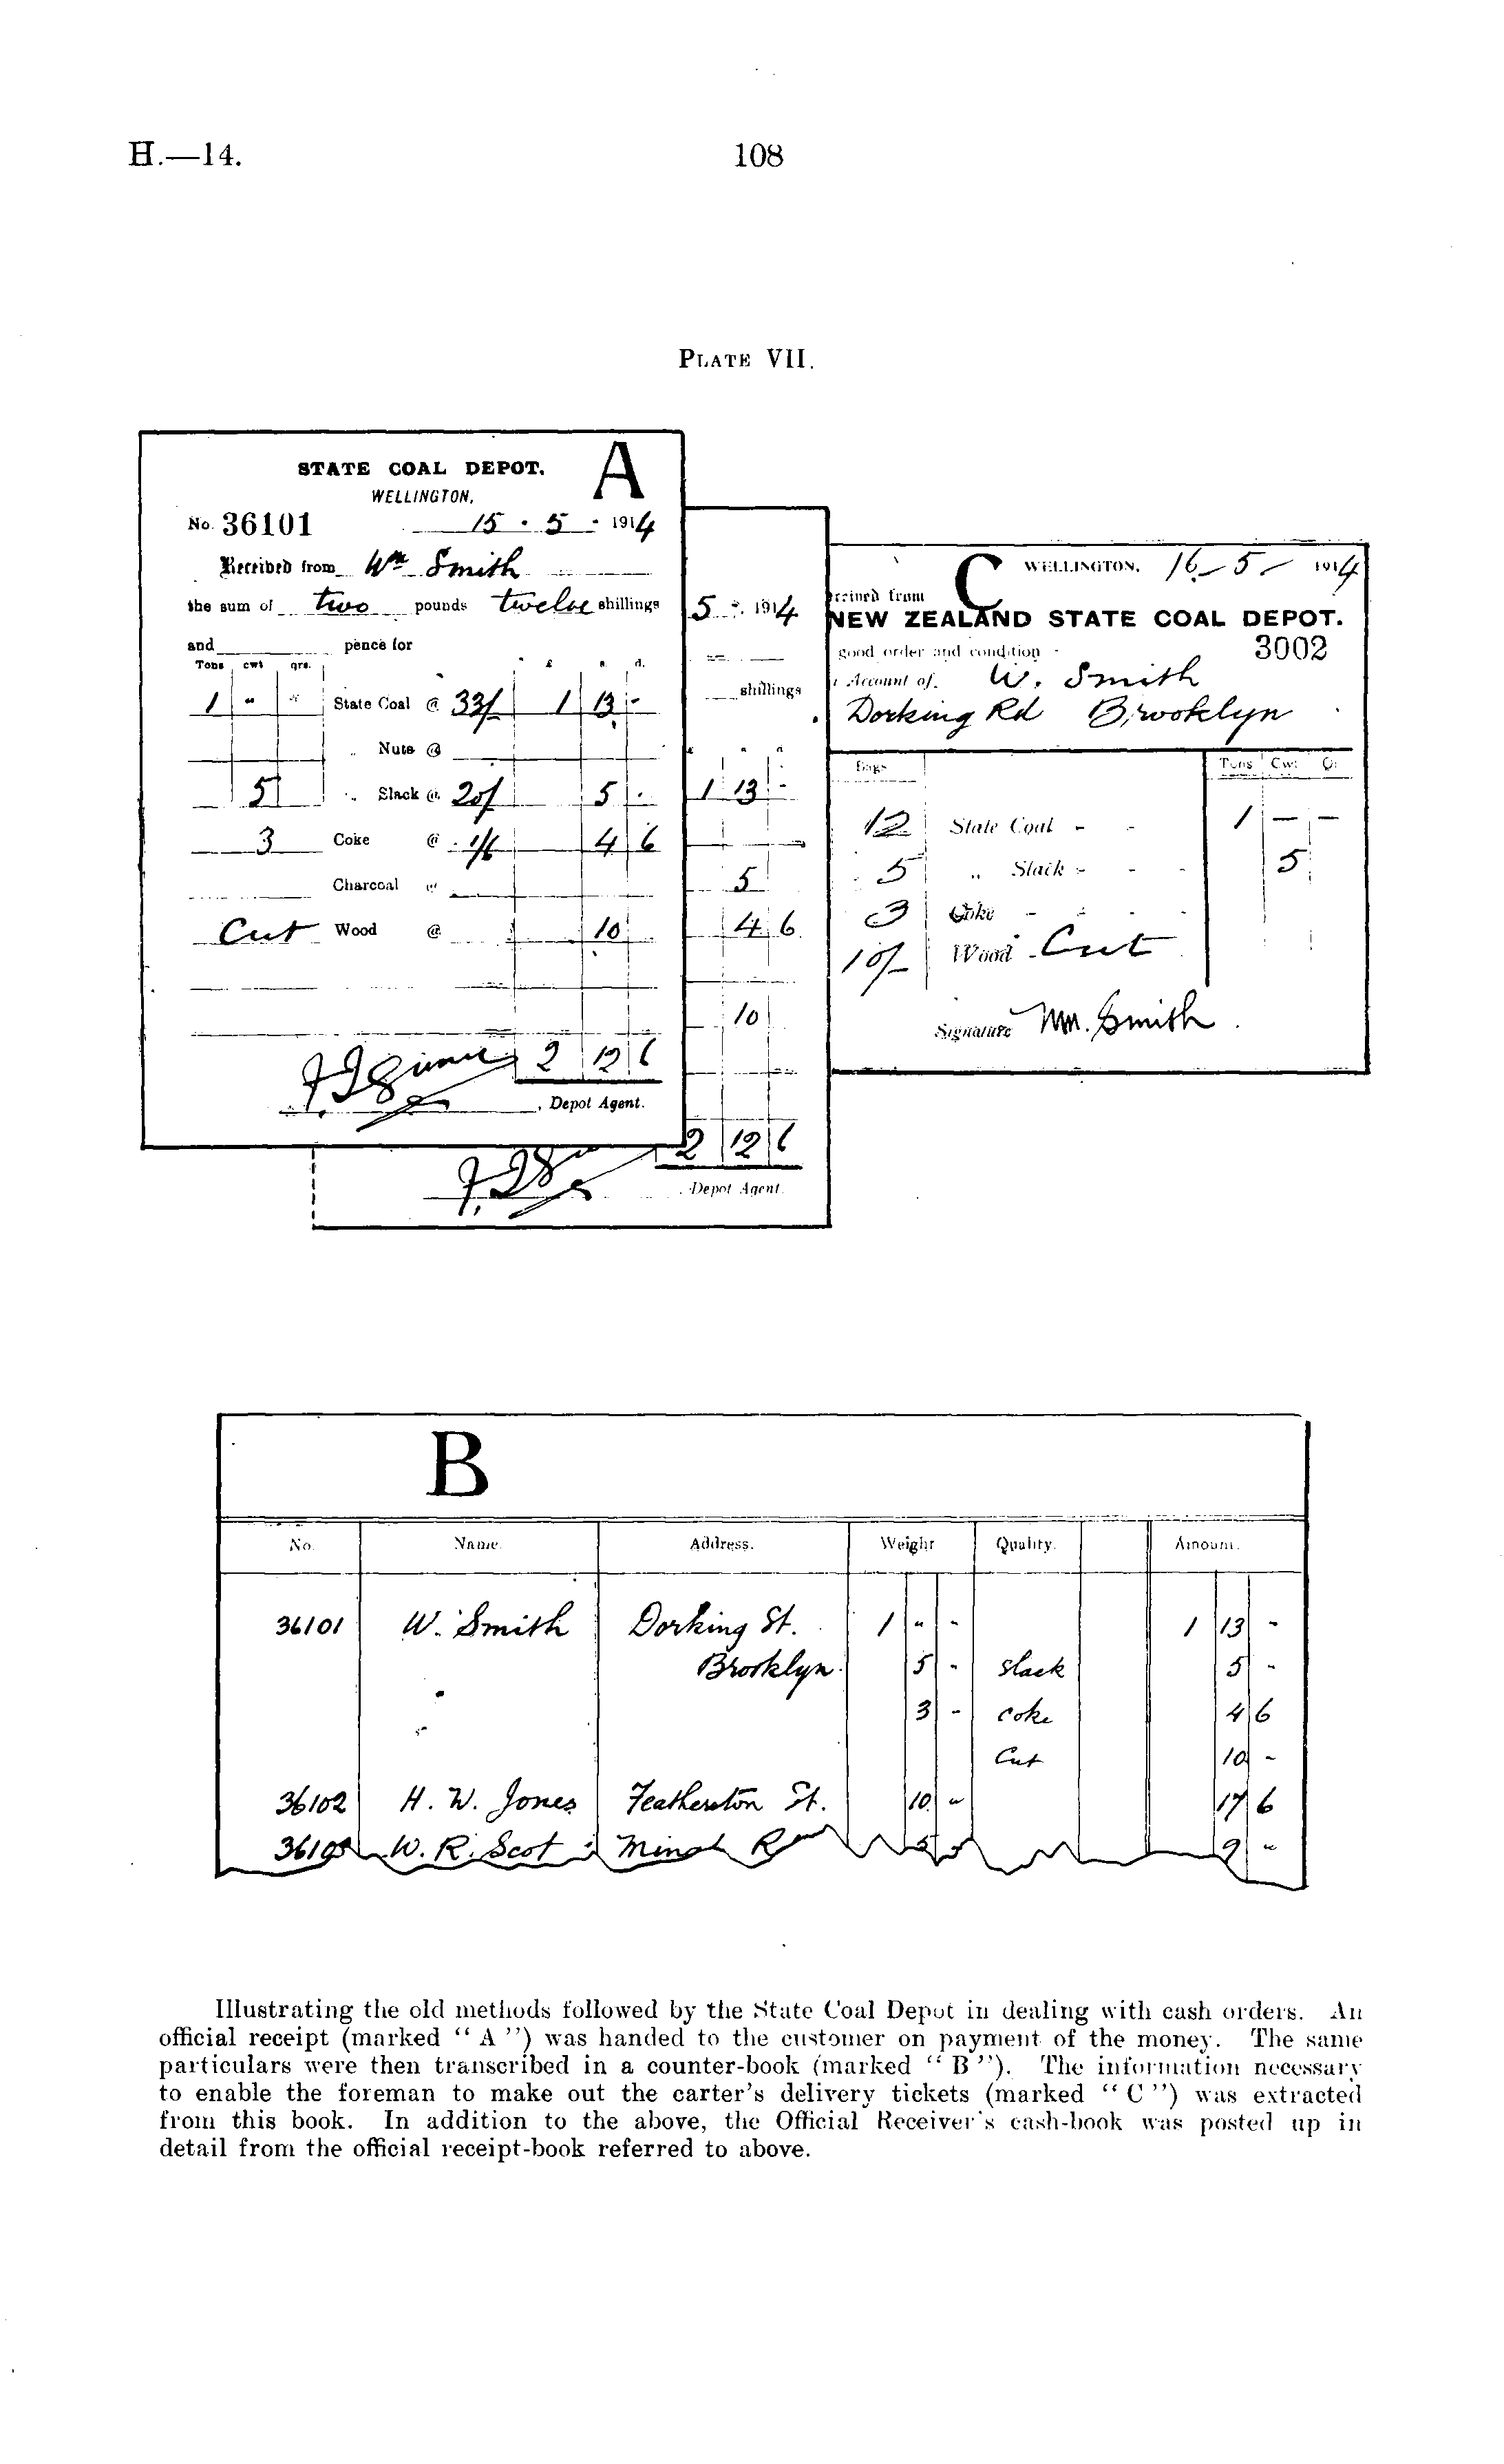 H.—14.
108
PLATE VII.
A
STATE COAL DEPOT.
WELLINGTON,
No. 36101 15 . 5 . 1914
Received from Wm Smith
the sum of two pounds twelve shillings
and pence for
Tons cwt qrs. £ s. d.
1 " " State Coal @ 33/ 1 13 -
" Nuts @
5 " Slack @ 20/ 5 -
3 Coke @ 1/6 4 6
Charcoal @
Cut Wood @ 10
2 12 6
Depot Agent.
5 . 1914
shillings
£ s d
1 13 -
5
4 6
10
2 12 6
Depot Agent.
C
WELLINGTON, 16 - 5 - 1914
NEW ZEALAND STATE COAL DEPOT.
good order and condition - 3002
Account of. W. Smith
Dorking Rd Brooklyn
Bags Tons Cwt Q.
12 State Coal - - 1 - -
5 " Slack - - - 5
3 Coke - - - -
10/- Wood - Cut
Signature Wm. Smith
B
No. Name. Address. Weight Quality. Amount.
36101 W. Smith Dorking St. 1 " - 1 13 -
Brooklyn. 5 - slack 5 -
" 3 - coke 4 6
" Cut 10 -
36102 H. W. Jones Featherston St. 10 - 17 6
W. R. Scot 5 9 -
Illustrating the old methods followed by the State Coal Depot in dealing with cash orders. An
official receipt (marked “ A ”) was handed to the customer on payment of the money. The same
particulars were then transcribed in a counter-book (marked “ B ”). The information necessary
to enable the foreman to make out the carter's delivery tickets (marked “ C ”) was extracted
from this book. In addition to the above, the Official Receiver's cash-book was posted up in
detail from the official receipt-book referred to above.